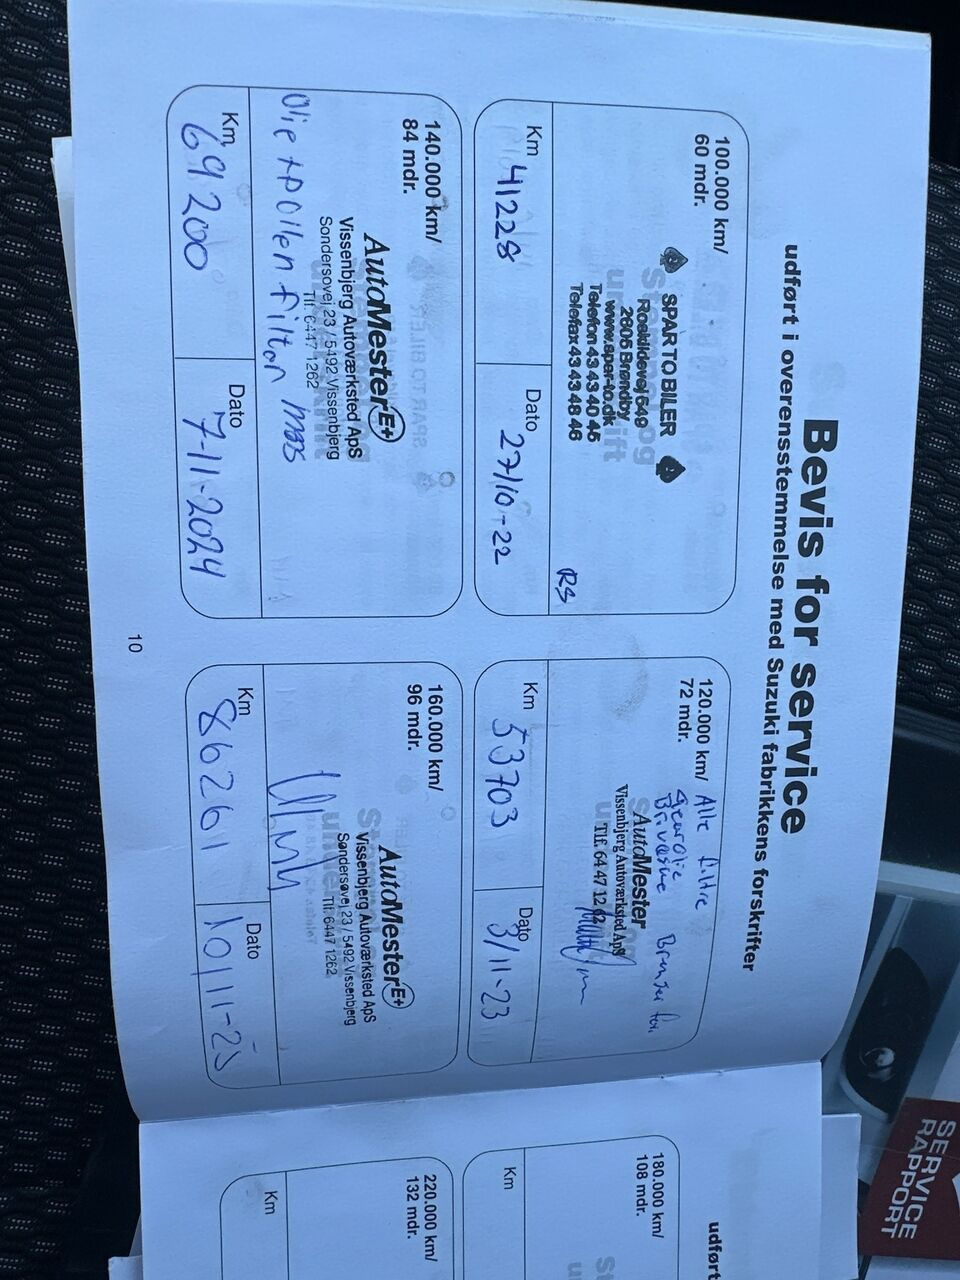 Bevis for service
udført i overensstemmelse med Suzuki fabrikkens forskrifter
100.000 km/
60 mdr.
SPAR TO BILER
Roskildevej 649
2605 Brøndby
www.spar-to.dk
Telefon 43 43 40 45
Telefax 43 43 48 46
RS
Km 41228
Dato 27/10-22
120.000 km/
72 mdr.
Alle filtre
Gearolie
AutoMester
Vissenbjerg Autoværksted ApS
Tlf. 64 47 12 62
Km 53703
Dato 3/11-23
140.000 km/
84 mdr.
AutoMester E+
Vissenbjerg Autoværksted ApS
Søndersøvej 23 / 5492 Vissenbjerg
Tlf. 6447 1262
Olie + pollenfilter
Km 69200
Dato 7-11-2024
160.000 km/
96 mdr.
AutoMester E+
Vissenbjerg Autoværksted ApS
Søndersøvej 23 / 5492 Vissenbjerg
Tlf. 6447 1262
Km 86261
Dato 10/11-25
10
udført
180.000 km/
108 mdr.
Km
220.000 km/
132 mdr.
Km
SERVICE
RAPPORT